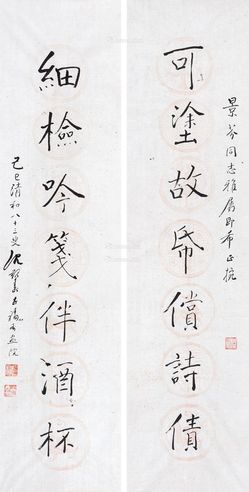 景芬同志雅属即希正
可塗故帋償詩債
細檢吟箋伴酒杯
己巳清和八十二叟沈